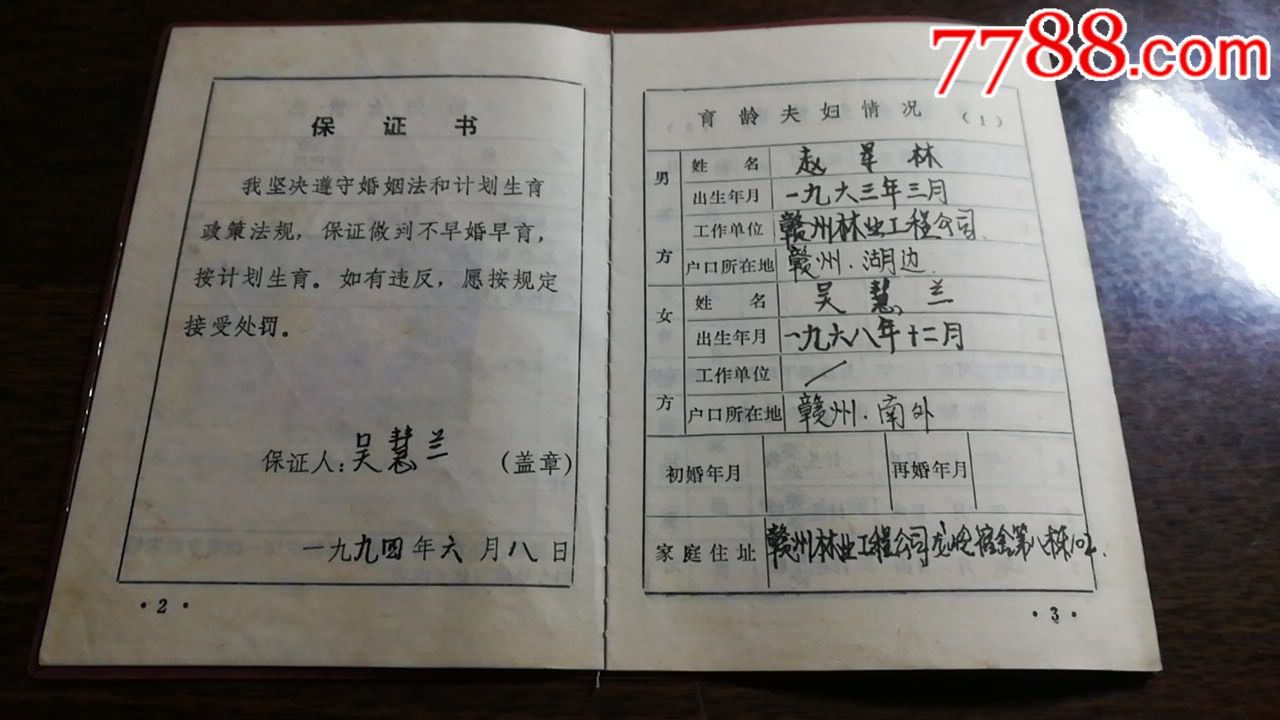 7788.com
保 证 书
我坚决遵守婚姻法和计划生育
政策法规，保证做到不早婚早育，
按计划生育。如有违反，愿按规定
接受处罚。
保证人：吴慧兰 （盖章）
一九九四年六月八日
·2·
育龄夫妇情况 （1）
男方
姓名 赵 林
出生年月 一九六三年三月
工作单位 赣州林业工程公司
户口所在地 赣州·湖边
女方
姓名 吴慧兰
出生年月 一九六八年十二月
工作单位 /
户口所在地 赣州·南外
初婚年月 再婚年月
家庭住址 赣州林业工程公司 宿舍第八栋
·3·